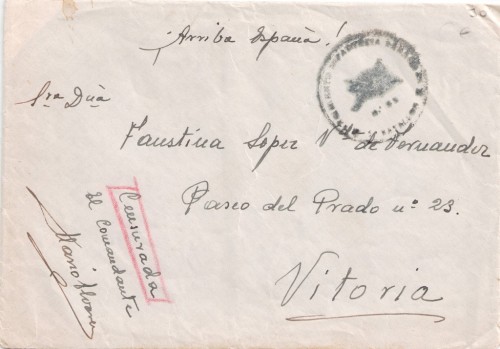 ¡Arriba España!
Sra Dña
Faustina Lopez Vda de Fernandez
Paseo del Prado nº 23.
Vitoria
Censurada
El Comandante